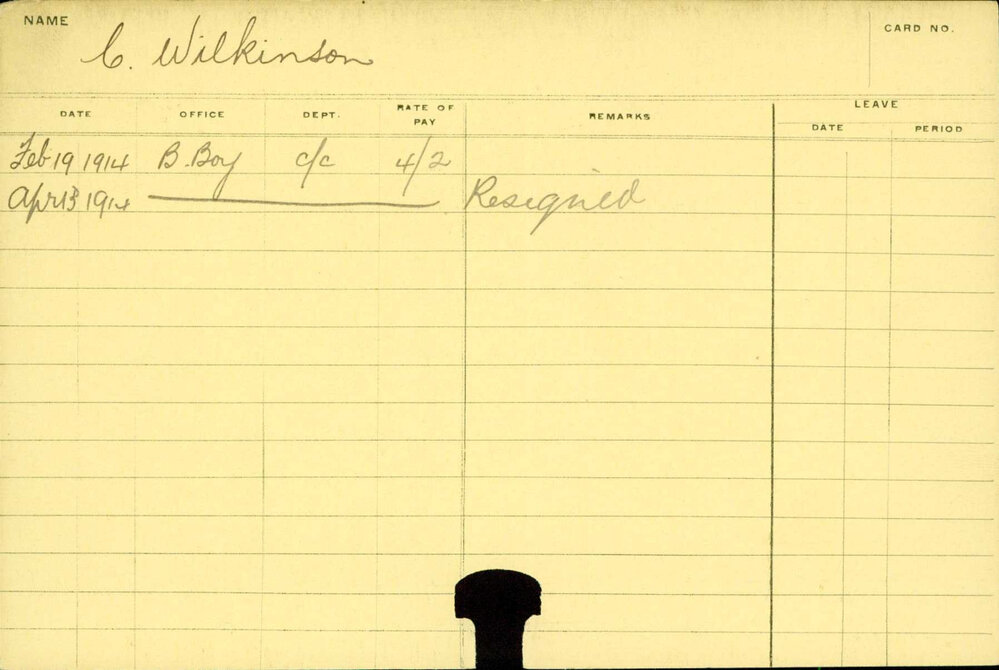 NAME
C. Wilkinson
CARD NO.
DATE OFFICE DEPT. RATE OF PAY REMARKS LEAVE
DATE PERIOD
Feb 19 1914 B. Boy c/c 4/2
Apr 13 1914 Resigned